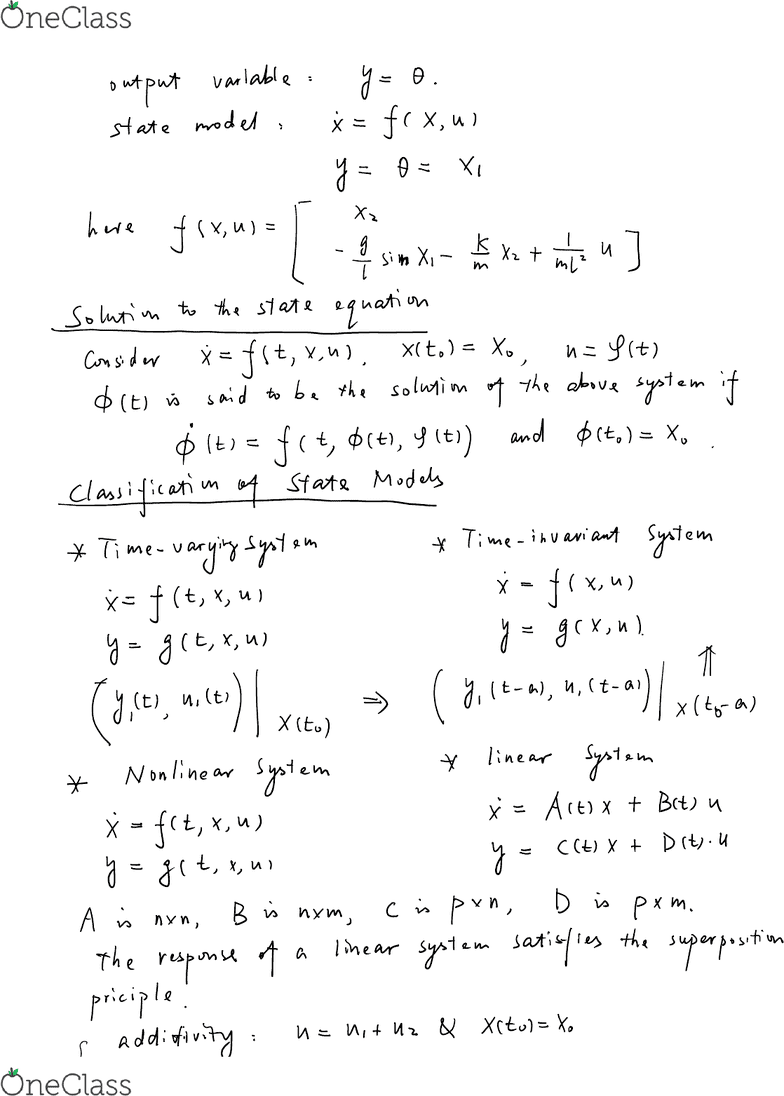 OneClass
output variable : y = θ.
state model : ẋ = f(x, u)
y = θ = x₁
here f(x,u) = [ x₂
-g/l sin x₁ - k/m x₂ + 1/ml² u ]
Solution to the state equation
Consider ẋ = f(t, x, u), x(t₀) = x₀, u = φ(t)
ϕ(t) is said to be the solution of the above system if
ϕ̇(t) = f(t, ϕ(t), φ(t)) and ϕ(t₀) = x₀.
Classification of State Models
* Time-varying System
ẋ = f(t, x, u)
y = g(t, x, u)
(y₁(t), u₁(t)) | x(t₀) ⇒
* Time-invariant System
ẋ = f(x, u)
y = g(x, u).
⇑
(y₁(t-a), u₁(t-a)) | x(t₀-a)
* Nonlinear System
ẋ = f(t, x, u)
y = g(t, x, u)
* linear System
ẋ = A(t)x + B(t)u
y = C(t)x + D(t)·u
A is n×n, B is n×m, C is p×n, D is p×m.
The response of a linear system satisfies the superposition
priciple.
additivity : u = u₁ + u₂ & x(t₀) = x₀
OneClass